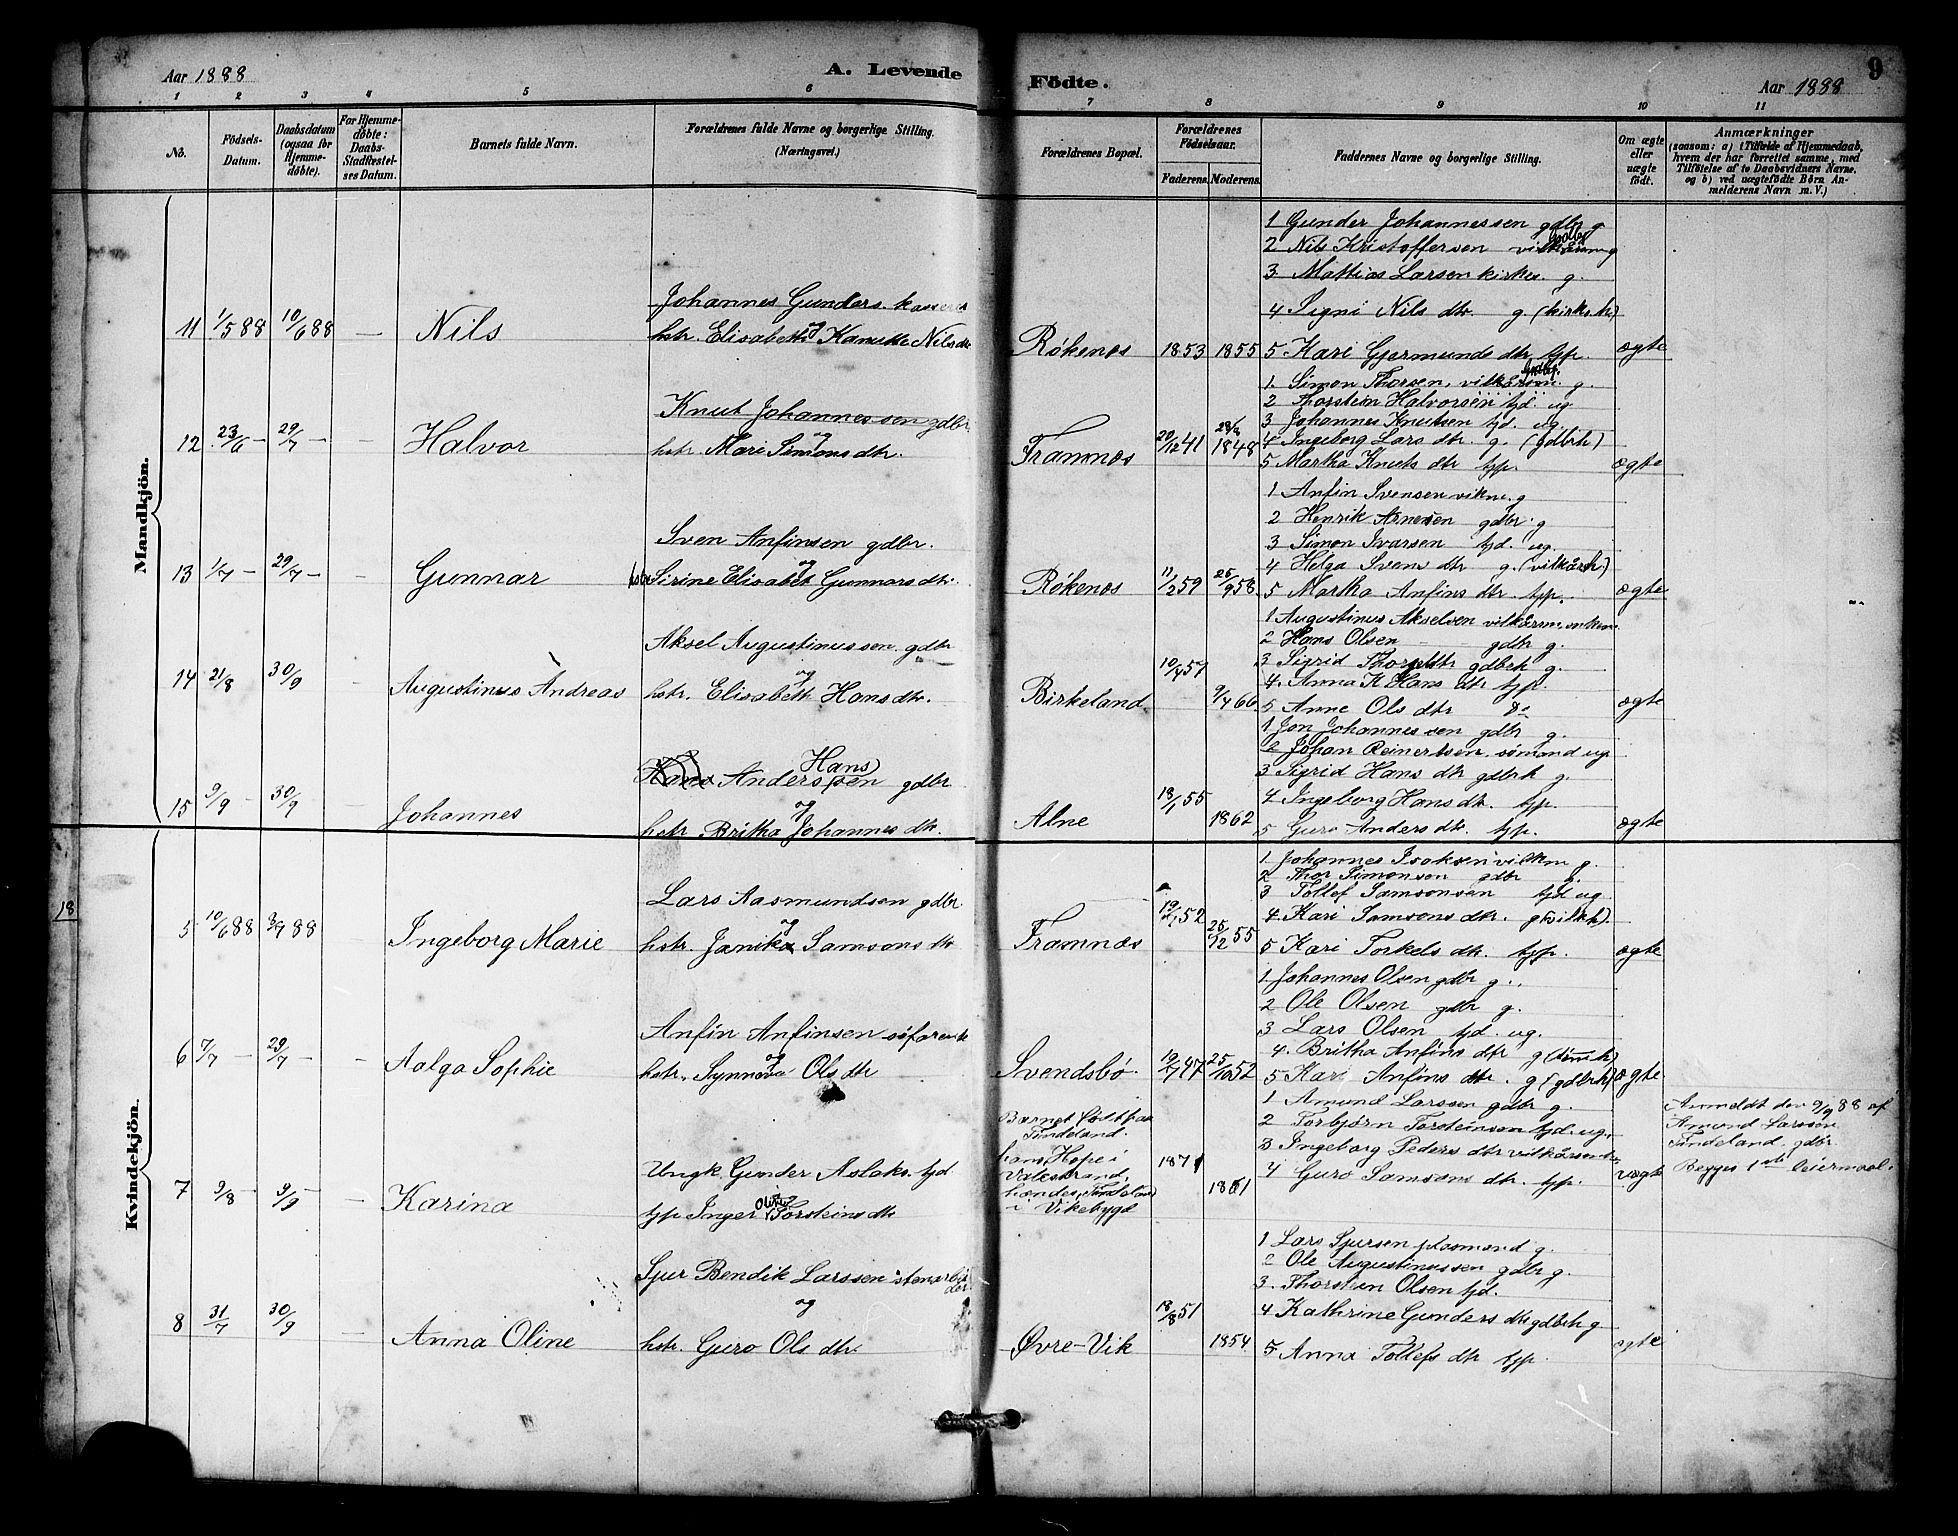 Aar 1888
A. Levende Födte.
Aar 1888
9
1 2 3 4 5 6 7 8 9 10 11
No.
Födsels-Datum.
Daabsdatum (ogsaa for Hjemmedöbte).
For Hjemmedöbte: Daabs-Stadfæstelses Datum.
Barnets fulde Navn.
Forældrenes fulde Navne og borgerlige Stilling. (Næringsvei.)
Forældrenes Bopæl.
Forældrenes Födselsaar.
Faderens. Moderens.
Faddernes Navne og borgerlige Stilling.
Om ægte eller uægte födt.
Anmærkninger
(saasom: a) i Tilfælde af Hjemmedaab, hvem der har forrettet samme, med Tilföielse af to Daabsvidners Navne. og b) ved uægtefödte Börn Anmelderens Navn m. V.)
Mandkjön.
11 1/5 88 10/6 88 — Nils
Johannes Gunders.
og
hstr. Elisabeth Kanutte Nils dtr
Røkenæs 1853 1855
1 Gunder Johannessen gdbr g
2 Nils Kristoffersen
3 Mattias Larsen kirkes. g.
4 Signi Nils dtr g (kirks.k)
5 Kari Gjermunds dtr tjp. ægte
12 23/6 — 29/7 — — Halvor
Knut Johannessen gdbr.
og
hstr. Mari Simons dtr.
Framnæs 20/12 41 1848
1. Simon Thorsen, g.
2 Thorstein Halvorsen tjd. ug.
3 Johannes Knutsen tjd. ug.
4 Ingeborg Lars dtr. g. (gdbrk)
5 Martha Knuts dtr tjp. ægte
13 1/7 — 29/7 — — Gunnar
Sven Anfinsen gdbr.
og
hstr Sirine Elisabet Gunnars dtr.
Røkenæs 11/2 59 25/9 58
1 Anfin Svensen vilkm. g
2 Henrik Arnesen gdbr. g
3 Simon Ivarsen tjd. ug.
4 Helga Svens dtr g. (vilkårsk)
5 Martha Anfins dtr tjp. ægte
14 21/8 30/9 — Augustinus Andreas
Aksel Augustinussen gdbr
og
hstr. Elisabeth Hans dtr.
Birkeland 10/4 57 9/4 66
1 Augustinus Akselsen vilkårsm. enkem.
2 Hans Olsen — gdbr g.
3 Sigrid gdbrk g.
4. Anna K Hans dtr tjp.
5 Anne Ols dtr Do ægte
15 9/9 — 30/9 — Johannes
Hans
Anderssen gdbr
og
hstr. Britha Johannes dtr.
Alne 18/1 55 1862
1 Jon Johannessen gdbr g.
2 Johan Reinertsen, sömand ug.
3 Sigrid Hans dtr gdbrk g.
4 Ingeborg Hans dtr. tjp.
5 Guro Anders dtr. tjp. ægte
Kvindekjön.
18
5 10/6 88 88 Ingeborg Marie
Lars Aasmundsen gdbr.
og
hstr. Janika Samsons dtr
Framnæs 52 25/12 55
1 Johannes Isaksen vilkm g.
2 Thor Simonsen gdbr g.
3 Tollef Samsonsen tjd ug.
4 Kari Samsons dtr. g (vilkk).
5 Kari Torkels dtr. tjp. ægte
6 7/7 — 29/7 — — Aalga Sophie
Anfin Anfinsen söfarende
og
hstr. Synnøva Ols dtr
Svendsbö 47 25/10 52
1 Johannes Olsen gdbr g.
2 Ole Olsen gdbr g.
3 Lars Olsen tjd. ug.
4. Britha Anfins dtr g
5 Kari Anfins dtr. g (gdbrk) ægte
7 9/8 — 9/9 — Karina
Ungk. Gunder Aslaks. tjd.
og
tjp Inger Olina Torsteins dtr
Barnet födt paa
Tindeland.
hans, Hope i
Valestrand,
hendes, Tindeland
i Vikebygd
1871 1861
1 Amund Larssen gdbr g.
2 Torbjörn Torsteinsen tjd. ug.
3 Ingeborg Peders dtr
4 Guro Samsons dtr. tjp. uægte
Anmeldt den 9/9 88 af
Amund Larssen
Tindeland gdbr.
Begges 1ste leiermaal.
8 31/7 30/9 — Anna Oline
Sjur Bendik Larssen stenarbeider
og
hstr. Guro Ols dtr.
Øvre-Vik 18/8 51 1854
1 Lars Sjursen plasmand g.
2 Ole Augustinussen gdbr g.
3. Thorstein Olsen tjd.
4 Kathrine Gunders dtr gdbrk g
5 Anna Tollefs dtr tjp. ægte